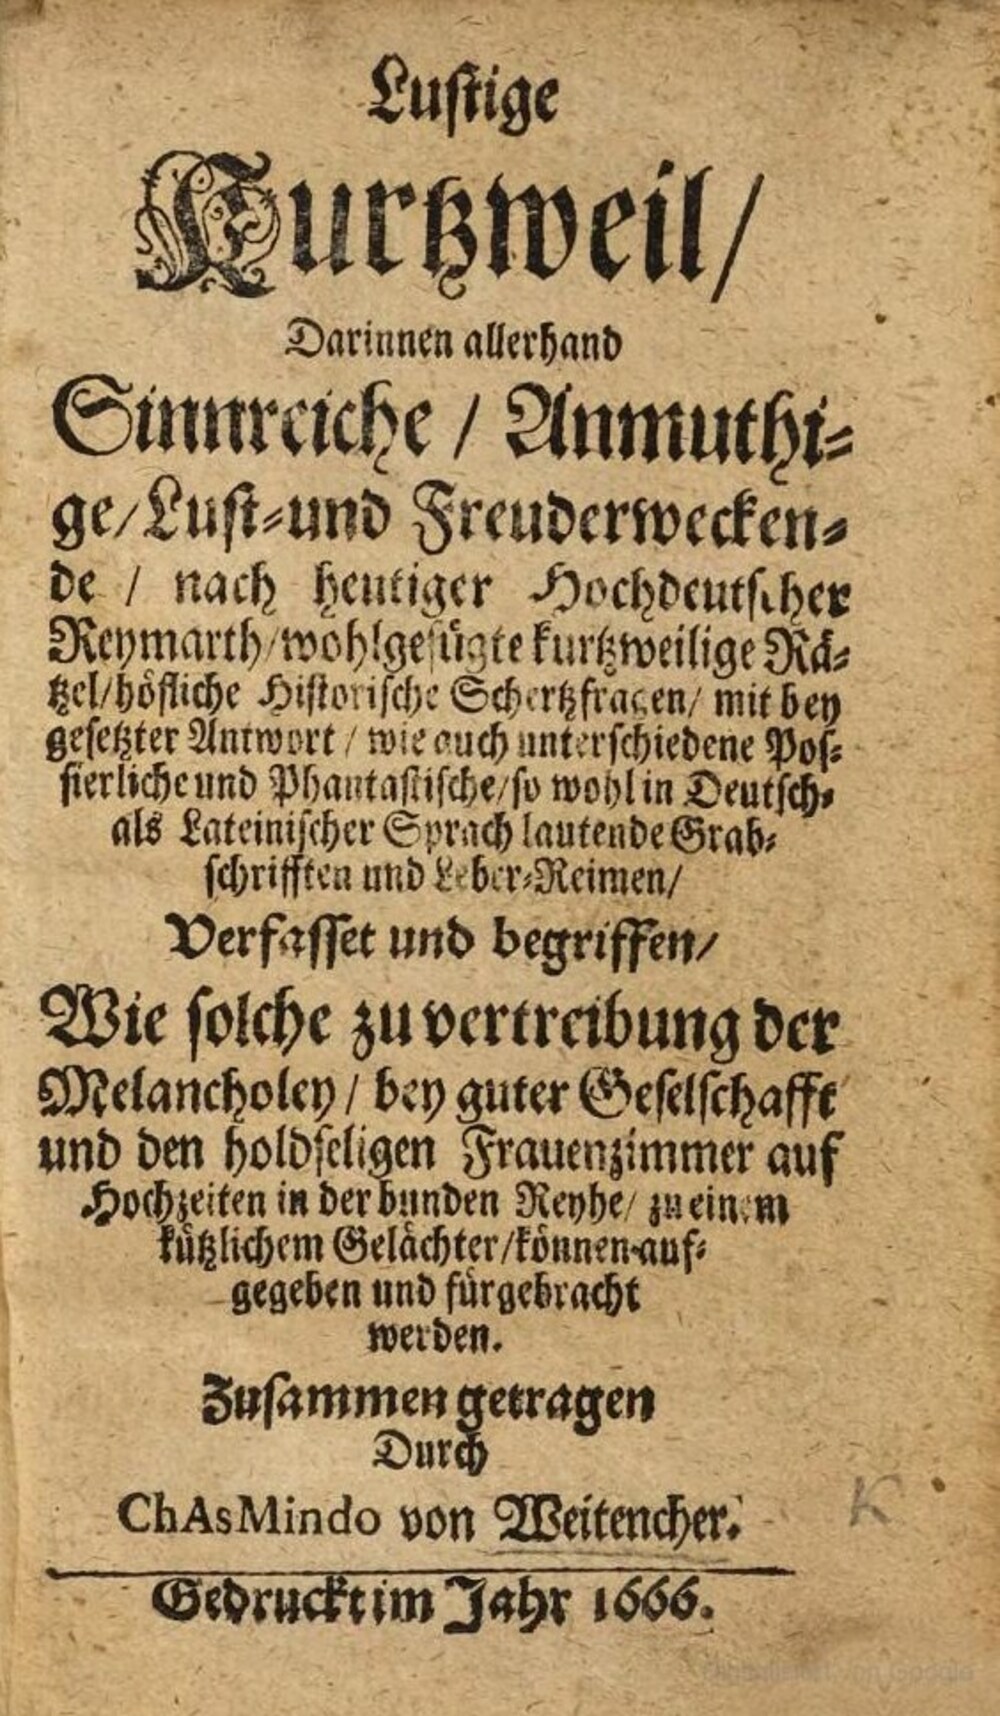 Lustige
Kurtzweil/
Darinnen allerhand
Sinnreiche / Anmuthi-
ge/Lust-und Freuderwecken-
de / nach heutiger Hochdeutscher
Reymarth/wohlgefügte kurtzweilige Rä-
tzel/höfliche Historische Schertzfragen/ mit bey
gesetzter Antwort / wie auch unterschiedene Pos-
sierliche und Phantastische/so wohl in Deutsch-
als Lateinischer Sprach lautende Grab-
schrifften und Leber-Reimen/
Verfasset und begriffen/
Wie solche zu vertreibung der
Melancholey / bey guter Geselschafft
und den holdseligen Frauenzimmer auf
Hochzeiten in der bunden Reyhe/ zu einem
kützlichem Gelächter/können auf-
gegeben und fürgebracht
werden.
Zusammen getragen
Durch
ChAsMindo von Weitencher.
K
Gedruckt im Jahr 1666.
Digitalisiert von Google